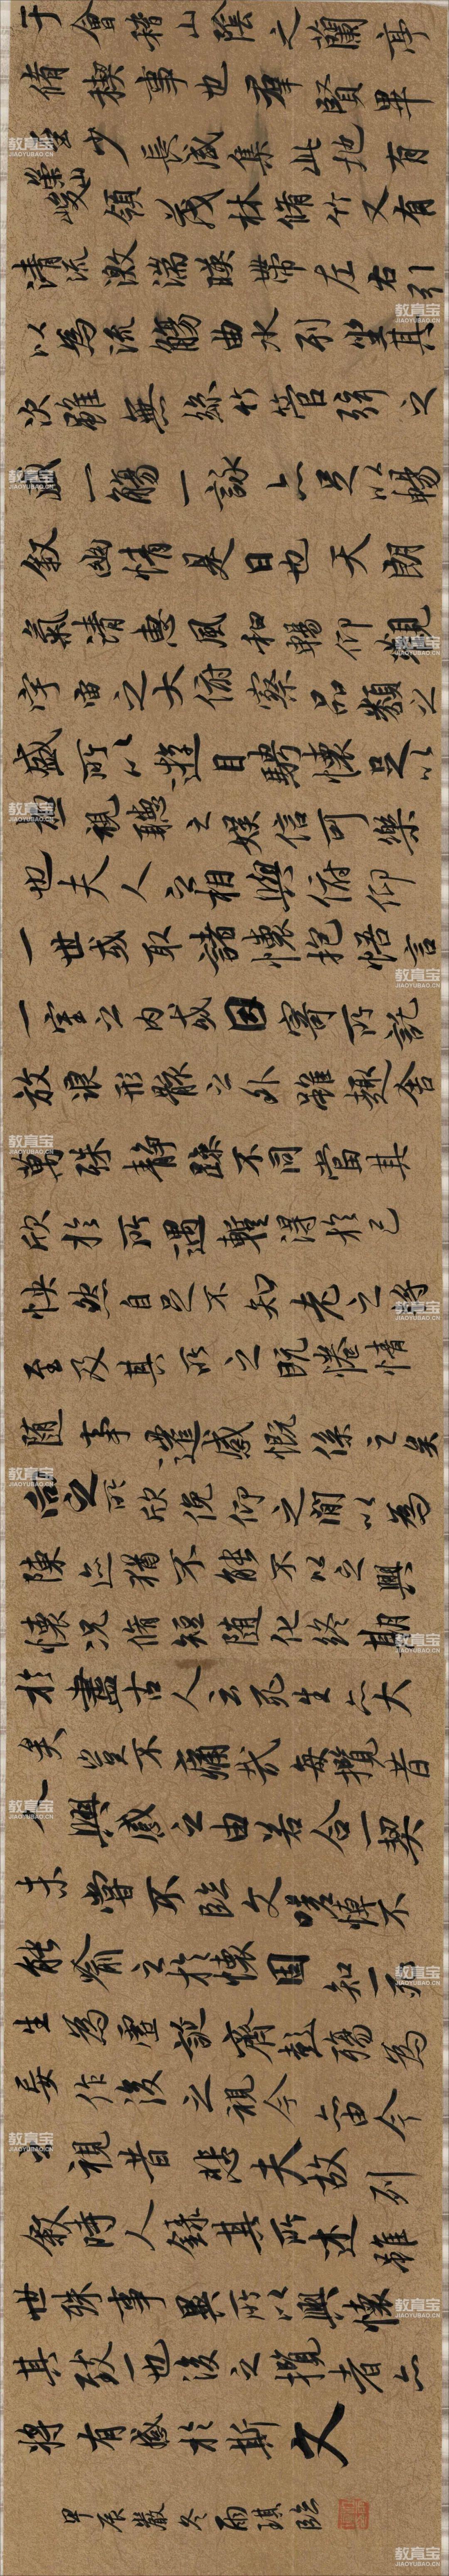 于會稽山陰之蘭亭
脩禊事也羣賢畢
至少長咸集此地有
崇山峻領茂林脩竹又有
清流激湍暎帶左右引
以為流觴曲水列坐其
次雖無絲竹管弦之
盛一觴一詠亦足以暢
叙幽情是日也天朗
氣清惠風和暢仰觀
宇宙之大俯察品類之
盛所以遊目騁懷足以
極視聽之娛信可樂
也夫人之相與俯仰
一世或取諸懷抱悟言
一室之內或因寄所託
放浪形骸之外雖趣舍
萬殊靜躁不同當其
欣於所遇暫得於己
怏然自足不知老之將
至及其所之既惓情
隨事遷感慨係之矣
向之所欣俛仰之閒以為
陳迹猶不能不以之興
懷況脩短隨化終期
於盡古人云死生亦大
矣豈不痛哉每攬昔
人興感之由若合一契
未嘗不臨文嗟悼不
能喻之於懷固知一死
生為虛誕齊彭殤為
妄作後之視今亦由今
之視昔悲夫故列
叙時人錄其所述雖
世殊事異所以興懷
其致一也後之攬者亦
將有感於斯文
甲辰嚴冬雨琪臨
教育宝
JIAOYUBAO.CN